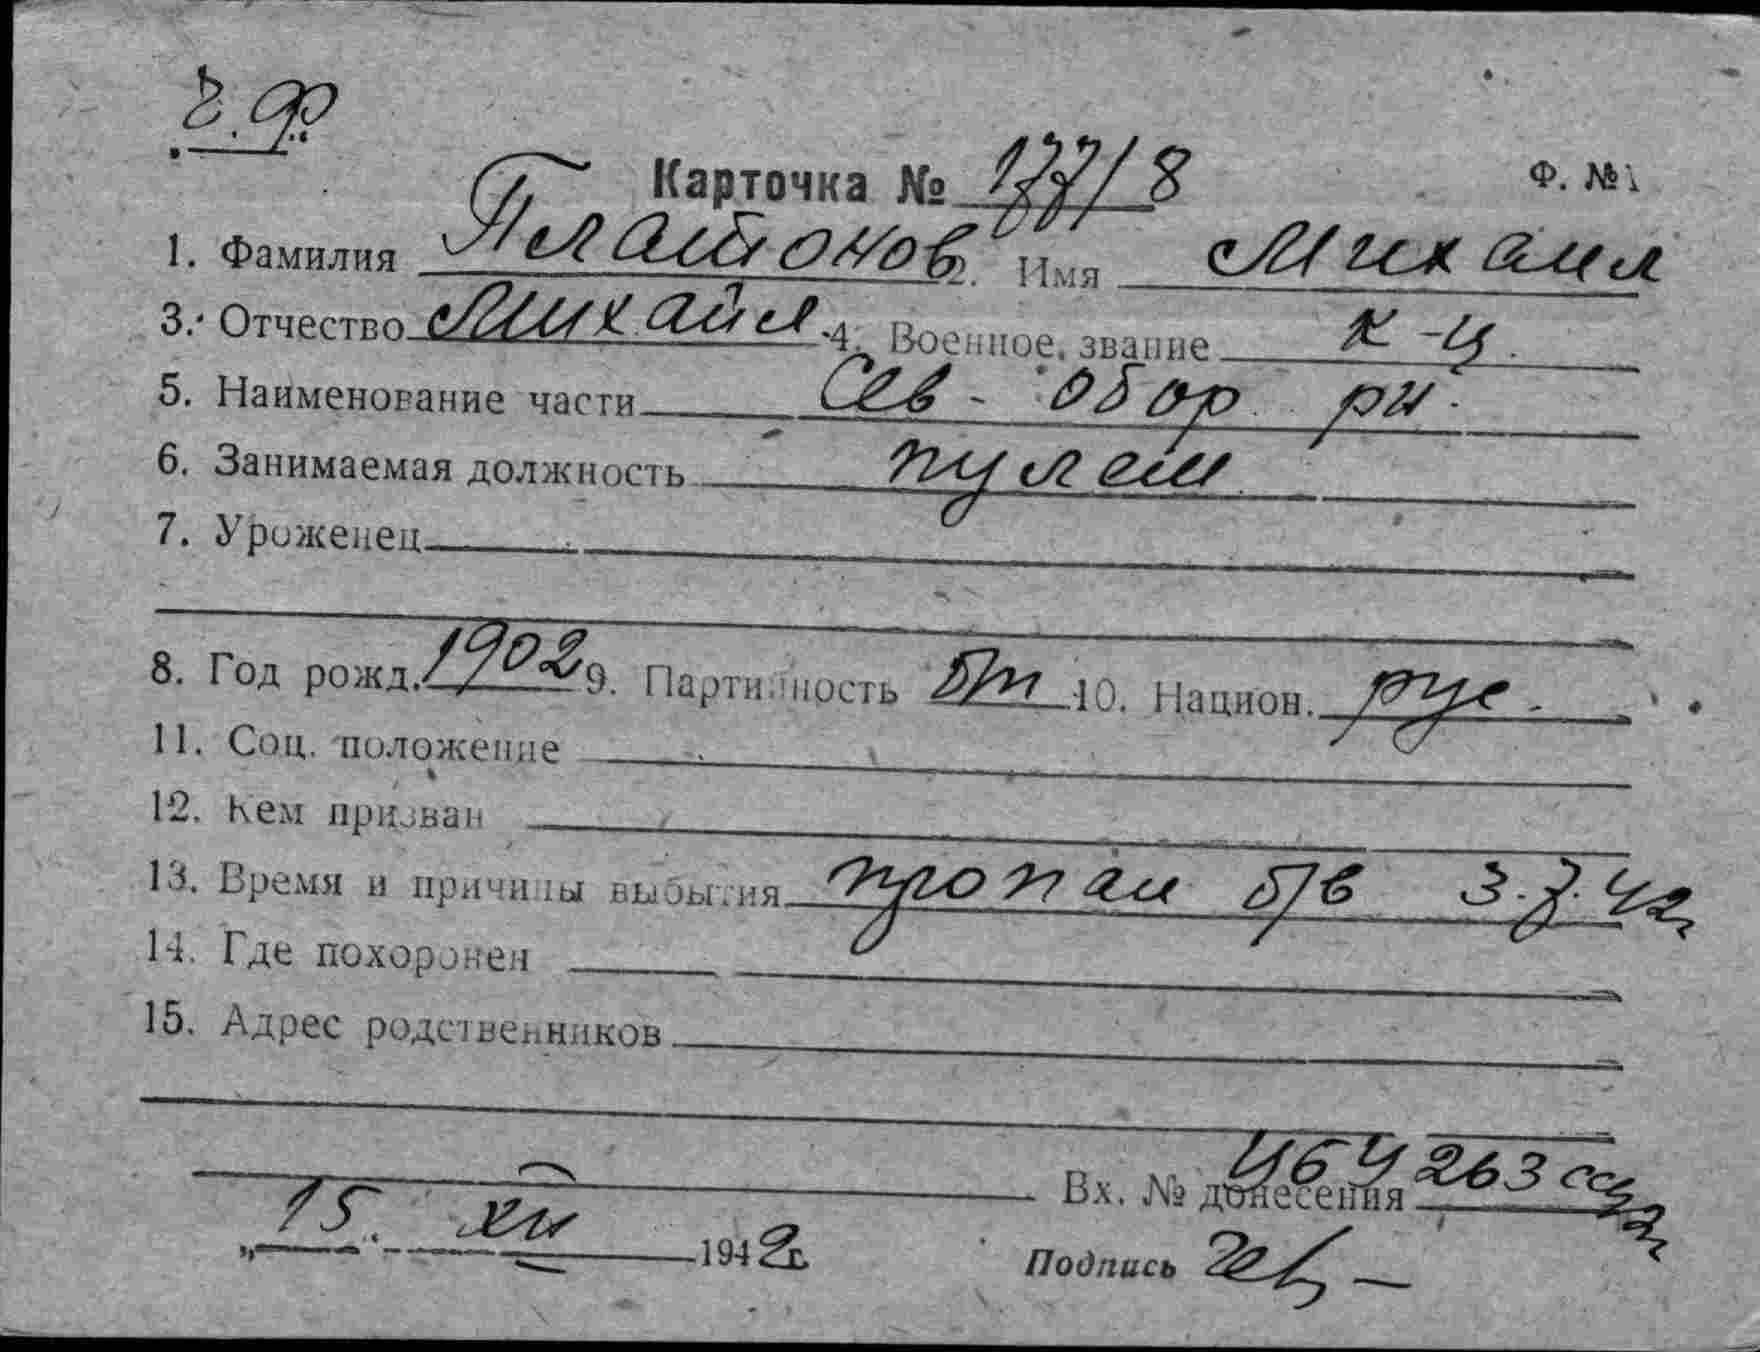 Ч.Ф.
Карточка № 177/8 Ф. №1
1. Фамилия Платонов 2. Имя Михаил
3. Отчество Михайл. 4. Военное звание к-ц.
5. Наименование части Сев-обор. рн.
6. Занимаемая должность пулем
7. Уроженец
8. Год рожд. 1902 9. Партийность б/п 10. Национ. рус.
11. Соц. положение
12. Кем призван
13. Время и причины выбытия пропал б/в 3.7.42
14. Где похоронен
15. Адрес родственников
Вх. № донесения 263
„15. XII 1942г.
Подпись